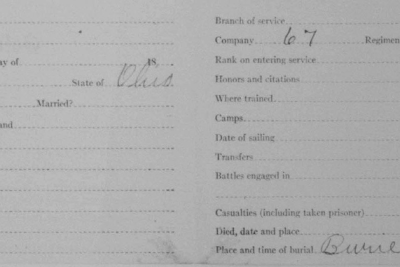 ay of 18
State of Ohio
Married?
and
Branch of service
Company 67 Regimen
Rank on entering service
Honors and citations
Where trained
Camps
Date of sailing
Transfers
Battles engaged in
Casualties (including taken prisoner)
Died, date and place
Place and time of burial